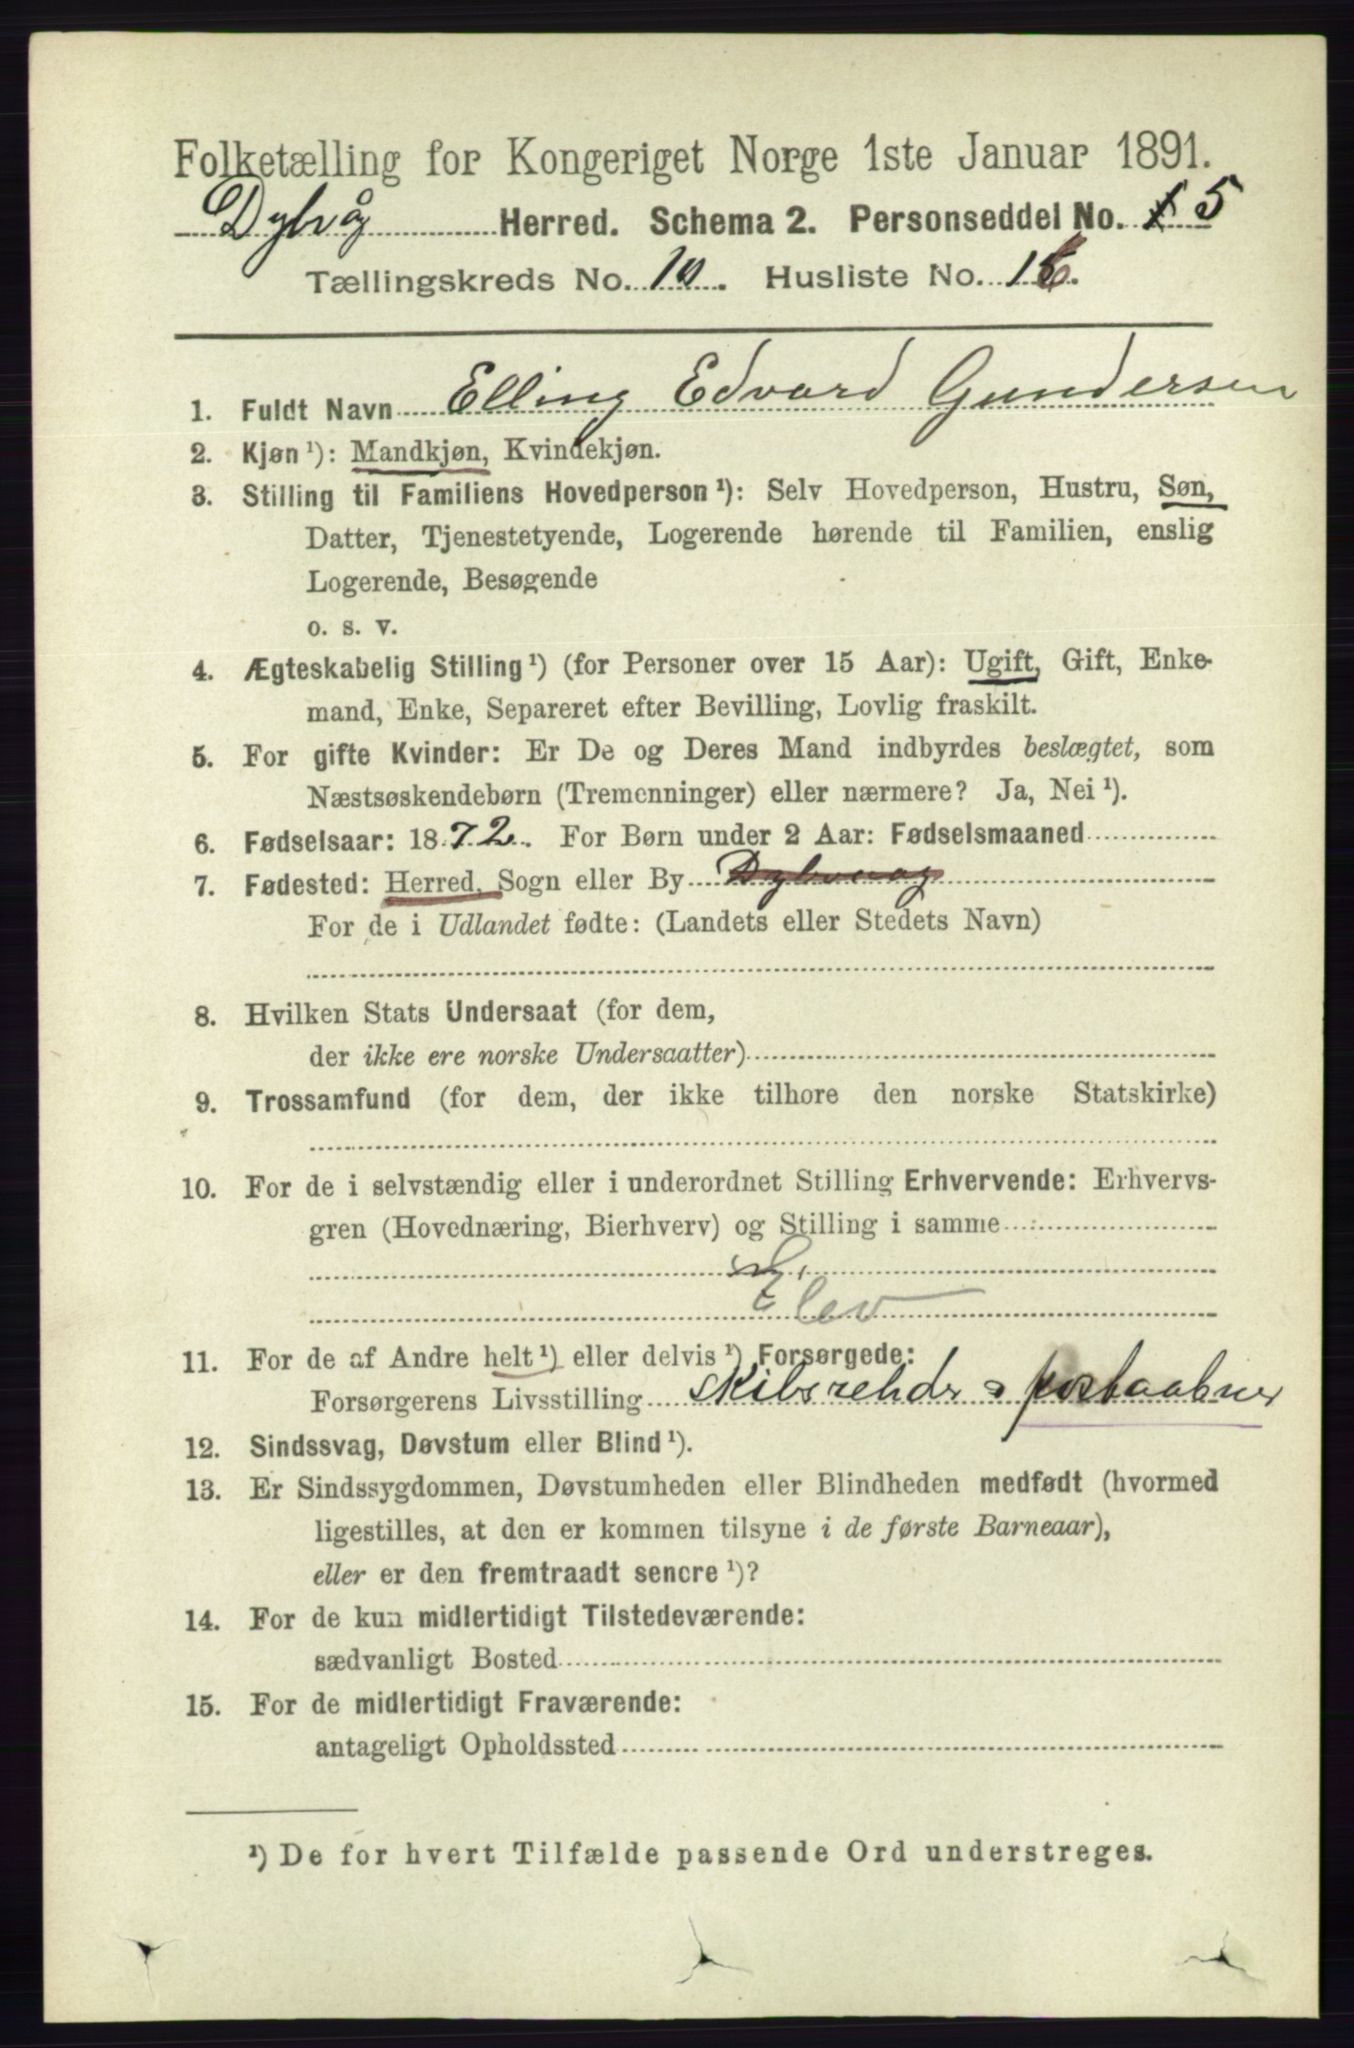 Folketælling for Kongeriget Norge 1ste Januar 1891.
Dybvåg Herred. Schema 2. Personseddel No. 5
Tællingskreds No. 10. Husliste No. 16.
1. Fuldt Navn Elling Edvard Gundersen
2. Kjøn ¹): Mandkjøn, Kvindekjøn.
3. Stilling til Familiens Hovedperson ¹): Selv Hovedperson, Hustru, Søn,
Datter, Tjenestetyende, Logerende hørende til Familien, enslig
Logerende, Besøgende
o. s. v.
4. Ægteskabelig Stilling ¹) (for Personer over 15 Aar): Ugift, Gift, Enke-
mand, Enke, Separeret efter Bevilling, Lovlig fraskilt.
5. For gifte Kvinder: Er De og Deres Mand indbyrdes beslægtet, som
Næstsøskendebørn (Tremenninger) eller nærmere? Ja, Nei ¹).
6. Fødselsaar: 1872. For Børn under 2 Aar: Fødselsmaaned
7. Fødested: Herred, Sogn eller By Dybvaag
For de i Udlandet fødte: (Landets eller Stedets Navn)
8. Hvilken Stats Undersaat (for dem,
der ikke ere norske Undersaatter)
9. Trossamfund (for dem, der ikke tilhøre den norske Statskirke)
10. For de i selvstændig eller i underordnet Stilling Erhvervende: Erhvervs-
gren (Hovednæring, Bierhverv) og Stilling i samme
Elev
11. For de af Andre helt ¹) eller delvis ¹) Forsørgede:
Forsørgerens Livsstilling Skibsrehder & postaabner
12. Sindssvag, Døvstum eller Blind ¹).
13. Er Sindssygdommen, Døvstumheden eller Blindheden medfødt (hvormed
ligestilles, at den er kommen tilsyne i de første Barneaar),
eller er den fremtraadt senere ¹)?
14. For de kun midlertidigt Tilstedeværende:
sædvanligt Bosted
15. For de midlertidigt Fraværende:
antageligt Opholdssted
¹) De for hvert Tilfælde passende Ord understreges.